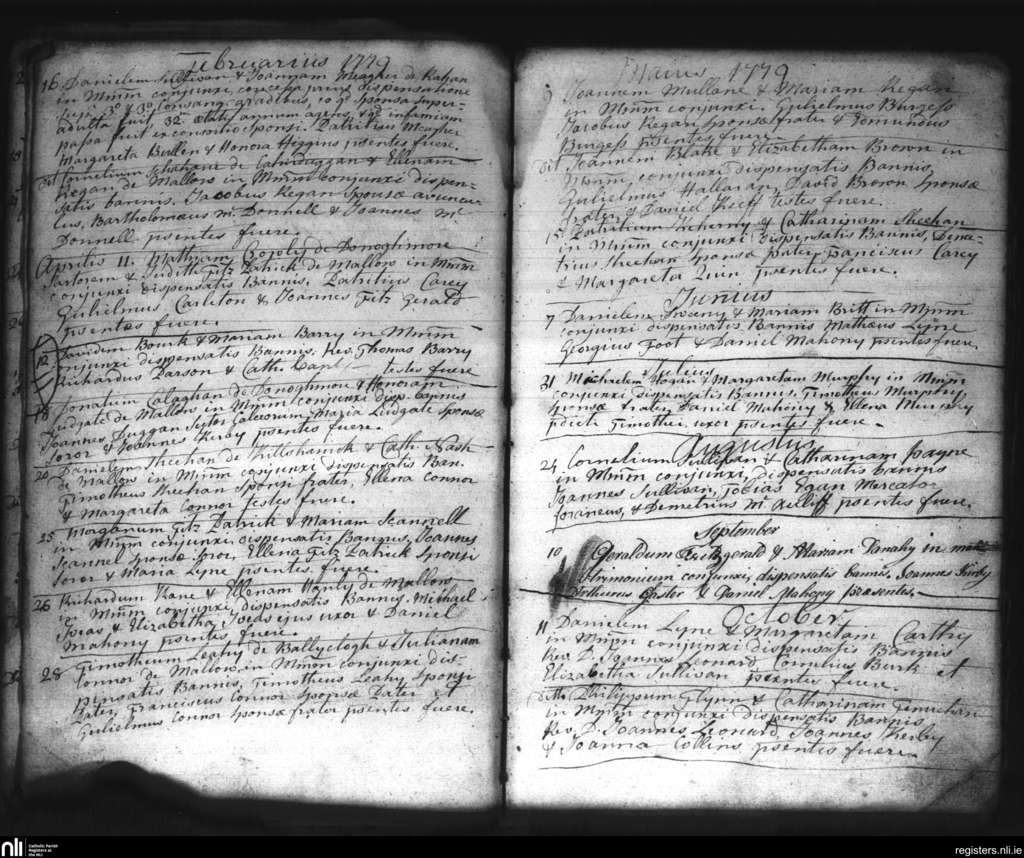 Februarius 1779
16 Danielem Sullivan & Joannam Meagher de Rahan
in Mmm conjunxi, concessa prius dispensatione
super 3° & 3° consang: gradibus, sponsa super-
adulta fuit, 32m ætatis annum agens, & infamiam
passa fuit ex sponsi. Patritius Meagher
Margareta Bullen & Honora Higgins psentes fuere.
Cornelium de Cahirduggan & Ellenam
Regan de Mallow in Mmm conjunxi dispen-
satis bannis. Jacobus Regan Sponsæ avuncu-
lus, Bartholomæus Mc Donnell & Joannes Mc
Donnell psentes fuere.
Aprilis 11. Mathiam Copoly de Donoghmore
Sartorem & Judith Fitz Patrick de Mallow in Mmm
conjunxi dispensatis Bannis. Patritius Carey
Gulielmus Carleton & Joannes Fitz Gerald
psentes fuere.
12 Davidem Bourk & Mariam Barry in Mmm
conjunxi dispensatis Bannis. Rev. Thomas Barry
Richardus Parson & Cath: testes fuere
Donatum Calaghan de Donoghmou & Honoram
Lidgate de Mallow in Mmm conjunxi disp: bannis
Joannes Duggan Maria Leidgate Sponsæ
soror & Joannes Kerby psentes fuere.
20 Danielem Sheehan de Killshanick & Cath: Nash
de Mallow in Mmm conjunxi dispensatis Ban.
Timotheus Sheehan Sponsi frater, Ellena Connor
& Margareta Connor testes fuere.
25 Morganum Fitz Patrick & Mariam Scannell
in Mmm conjunxi dispensatis Bannis, Joannes
Scannel Sponsæ Ellena Fitz Patrick Sponsi
soror & Maria Lyne psentes fuere.
26 Richardum Kane & Ellenam de Mallow
in Mmm conjunxi dispensatis Bannis. Michael
& Elizabetha ejus uxor & Daniel
Mahony psentes fuere.
28 Timotheum Leahy de Ballyclogh & Julianam
Connor de Mallow, in Mmm conjunxi dis-
pensatis Bannis, Timotheus Leahy Sponsi
Pater, Franciscus Connor Sponsæ Pater et
Gulielmus Connor Sponsæ frater psentes fuere.
Maius 1779
9 Joannem Mullane & Mariam Regan
in Mmm conjunxi. Gulielmus Burgess
Jacobus Regan sponsæ frater & Edmundus
Burgess psentes fuere.
Dit Joannem Blake & Elizabetham Brown in
Mmm conjunxi dispensatis Bannis,
Gulielmus Hallaran, David Brown Sponsæ
frater & Daniel Keeff testes fuere.
15 Patritium & Catharinam Sheehan
in Mmm conjunxi dispensatis Bannis, Deme-
trius Sheehan Sponsæ pater, Franciscus Carey
& Margareta Quin psentes fuere.
Junius
7 Danielem Sweeny & Mariam Britt in Mmm
conjunxi dispensatis Bannis Mathæus Lyne
Georgius Foot & Daniel Mahony psentes fuere.
Julius
31 Michælem Hogan & Margaretam Murphy in Mmm
conjunxi dispensatis Bannis. Timotheus Murphy
sponsæ frater, Daniel Mahony & Ellena Murphy
pdicti Timothei uxor psentes fuere.
Augustus
24 Cornelium Sullivan & Catharinam Payne
in Mmm conjunxi, dispensatis bannis
Joannes Sullivan, Tobias Egan Mercator
foraneus, & Demetrius Mc psentes fuere.
September
10 Geraldum Fitzgerald & Mariam Danahy in matri-
trimonium conjunxi, dispensatis bannis. Joannes
Arthurus & Daniel Mahony Præsentes.
October
11 Danielem Lyne & Margaretam Carthy
in Mmm conjunxi dispensatis Bannis
Rev. D. Joannes Leonard, Cornelius Burk et
Elizabetha Sullivan psentes fuere.
Ditto Philippum Flynn & Catharinam
in Mmm conjunxi dispensatis Bannis
Rev. D. Joannes Leonard, Joannes Kerby
& Joanna Collins psentes fuere.
nli
Catholic Parish
Registers at
the NLI
registers.nli.ie